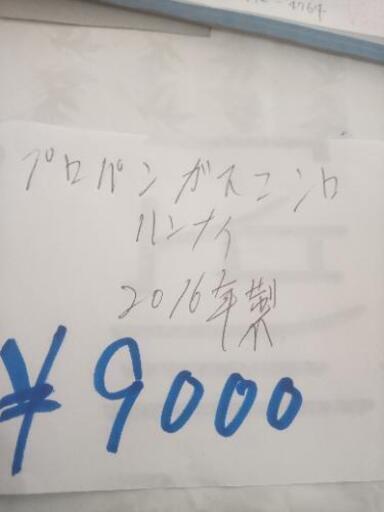 -4764
プロパンガスコンロ
リンナイ
2016年製
¥9000